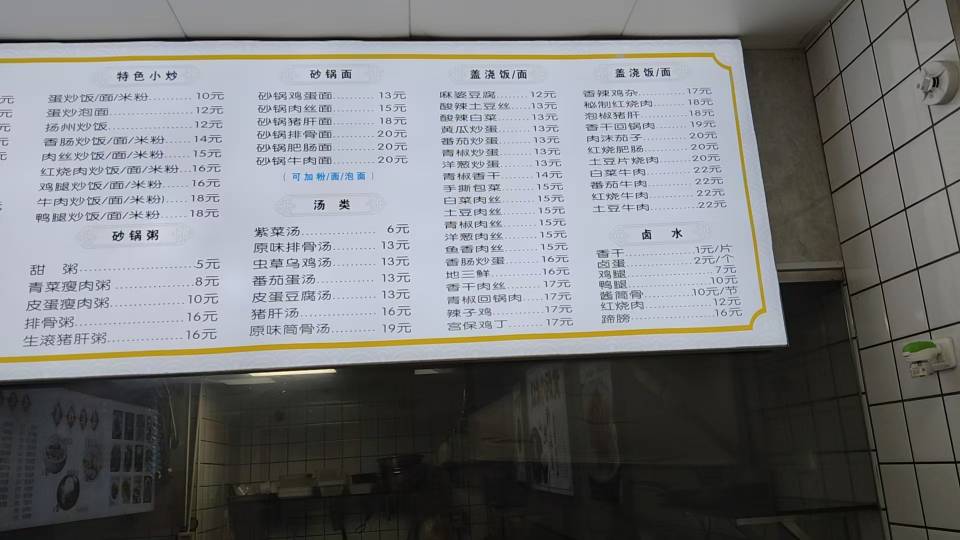 特色小炒
蛋炒饭/面/米粉 10元
蛋炒泡面 12元
扬州炒饭 12元
香肠炒饭/面/米粉 14元
肉丝炒饭/面/米粉 15元
红烧肉炒饭/面/米粉 16元
鸡腿炒饭/面/米粉 16元
牛肉炒饭/面/米粉) 18元
鸭腿炒饭/面/米粉 18元
砂锅粥
甜 粥 5元
青菜瘦肉粥 8元
皮蛋瘦肉粥 10元
排骨粥 16元
生滚猪肝粥 16元
砂锅面
砂锅鸡蛋面 13元
砂锅肉丝面 15元
砂锅猪肝面 18元
砂锅排骨面 20元
砂锅肥肠面 20元
砂锅牛肉面 20元
(可加粉/面/泡面)
汤 类
紫菜汤 6元
原味排骨汤 13元
虫草乌鸡汤 13元
番茄蛋汤 13元
皮蛋豆腐汤 13元
猪肝汤 16元
原味筒骨汤 19元
盖浇饭/面
麻婆豆腐 12元
酸辣土豆丝 13元
酸辣白菜 13元
黄瓜炒蛋 13元
番茄炒蛋 13元
青椒炒蛋 13元
洋葱炒蛋 13元
青椒香干 14元
手撕包菜 15元
白菜肉丝 15元
土豆肉丝 15元
青椒肉丝 15元
洋葱肉丝 15元
鱼香肉丝 15元
香肠炒蛋 16元
地三鲜 16元
香干肉丝 17元
青椒回锅肉 17元
辣子鸡 17元
宫保鸡丁 17元
盖浇饭/面
香辣鸡杂 17元
秘制红烧肉 18元
泡椒猪肝 18元
香干回锅肉 19元
肉沫茄子 20元
红烧肥肠 20元
土豆片烧肉 20元
白菜牛肉 22元
番茄牛肉 22元
红烧牛肉 22元
土豆牛肉 22元
卤 水
香干 1元/片
卤蛋 2元/个
鸡腿 7元
鸭腿 10元
酱筒骨 10元/节
红烧肉 12元
蹄膀 16元